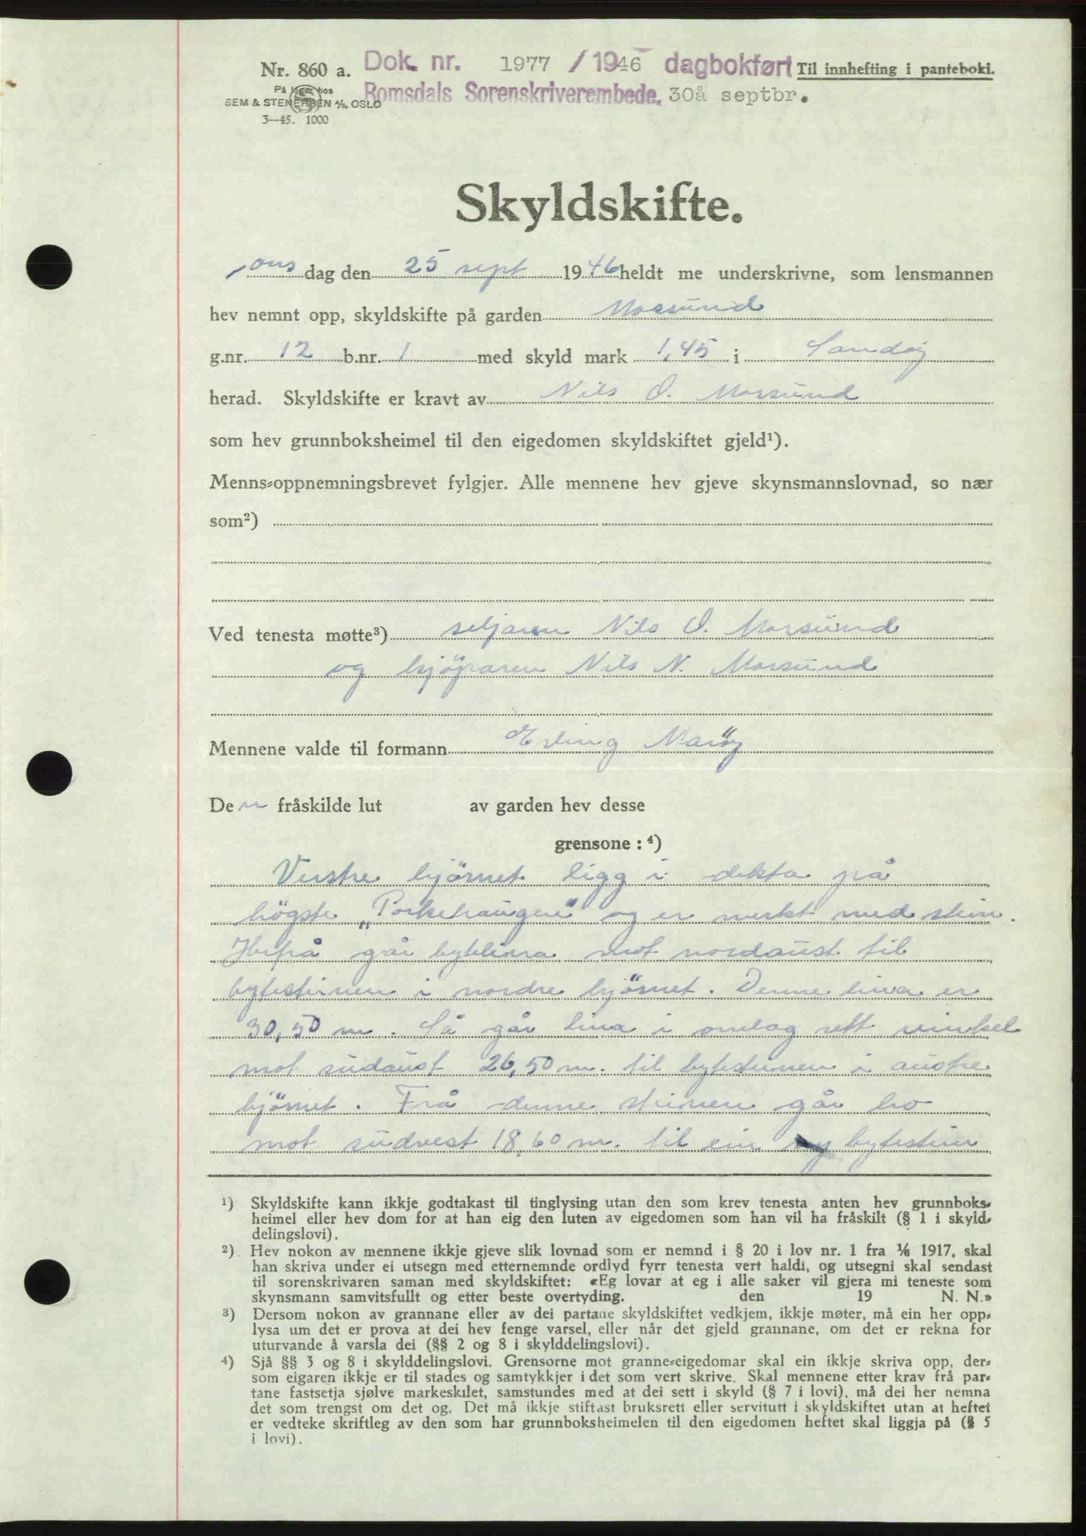 Nr. 860 a. Dok. nr. 1977 / 1946 dagbokført Til innhefting i panteboki.
På lager hos
SEM & STENERSEN A/S, OSLO Romsdals Sorenskriverembede, 30å septbr.
3—45. 1000
Skyldskifte.
ons dag den 25 sept 1946 heldt me underskrivne, som lensmannen
hev nemnt opp, skyldskifte på garden Morsund
g.nr. 12 b.nr. 1 med skyld mark 1,45 i Sandøy
herad. Skyldskifte er kravt av Nils O. Morsund
som hev grunnboksheimel til den eigedomen skyldskiftet gjeld¹).
Menns-oppnemningsbrevet fylgjer. Alle mennene hev gjeve skynsmannslovnad, so nær
som²)
Ved tenesta møtte³) seljaren Nils O. Morsund
og kjöparen Nils N. Morsund
Mennene valde til formann Erling Maröy
De n fråskilde lut av garden hev desse
grensone : ⁴)
Vestre hjörnet ligg i dekta på
högste og er merkt med stein.
Herfrå går bytelina mot nordaust til
bytesteinen i nordre hjörnet. Denne lina er
30,50 m. Så går lina i omlag rett vinkel
mot sudaust 26,50 m. til bytesteinen i austre
hjörnet. Frå denne steinen går ho
mot sudvest 18,60 m. til ein ny bytestein
¹) Skyldskifte kann ikkje godtakast til tinglysing utan den som krev tenesta anten hev grunnboks-
heimel eller hev dom for at han eig den luten av eigedomen som han vil ha fråskilt (§ 1 i skyld-
delingslovi).
²) Hev nokon av mennene ikkje gjeve slik lovnad som er nemnd i § 20 i lov nr. 1 fra ⅙ 1917, skal
han skriva under ei utsegn med etternemnde ordlyd fyrr tenesta vert haldi, og utsegni skal sendast
til sorenskrivaren saman med skyldskiftet: «Eg lovar at eg i alle saker vil gjera mi teneste som
skynsmann samvitsfullt og etter beste overtyding. den 19 N. N.»
³) Dersom nokon av grannane eller av dei partane skyldskiftet vedkjem, ikkje møter, må ein her opp-
lysa um det er prova at dei hev fenge varsel, eller når det gjeld grannane, om det er rekna for
uturvande å varsla dei (§§ 2 og 8 i skylddelingslovi).
⁴) Sjå §§ 3 og 8 i skylddelingslovi. Grensorne mot granne-eigedomar skal ein ikkje skriva opp, der-
som eigaren ikkje er til stades og samtykkjer i det som vert skrive. Skal mennene etter krav frå par-
tane fastsetja sjølve markeskilet, samstundes med at dei sett i skyld (§ 7 i lovi), må dei her nemna
det som trengst om det og. Det må ikkje stiftast bruksrett eller servitutt i skyldskiftet utan at heftet
er vedteke skriftleg av den som har grunnboksheimelen til den eigedomen heftet skal liggja på (§ 5
i lovi).